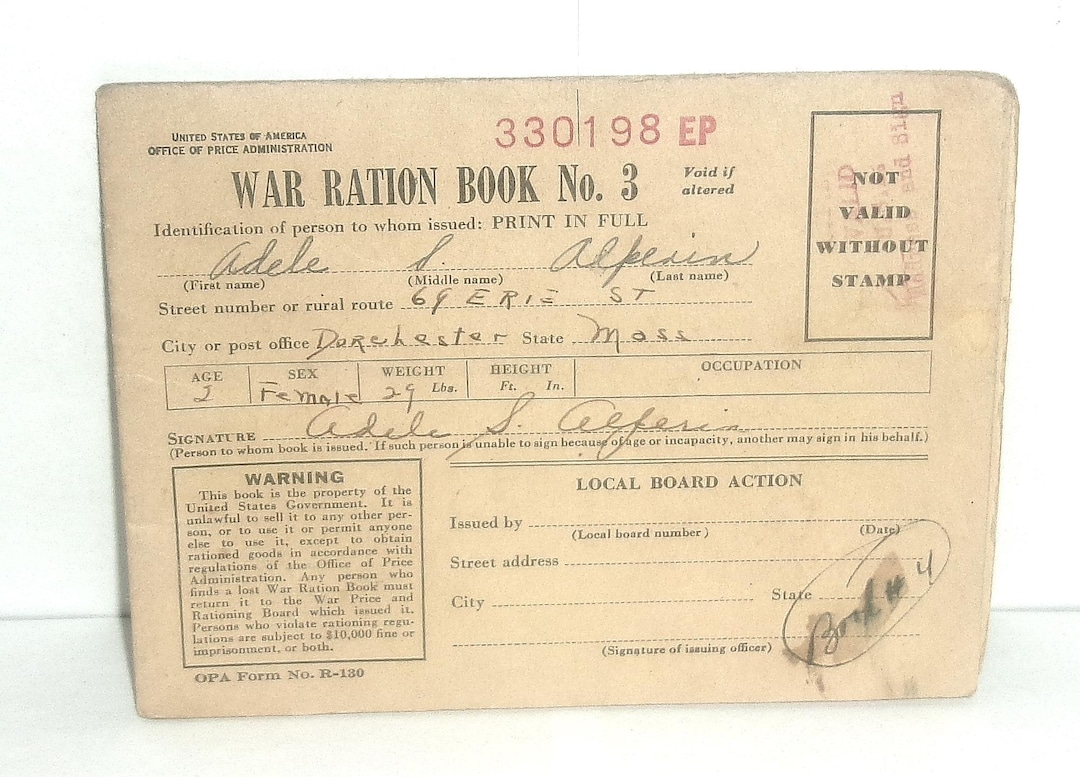 UNITED STATES OF AMERICA
OFFICE OF PRICE ADMINISTRATION
330198 EP
WAR RATION BOOK No. 3
Void if
altered
Identification of person to whom issued: PRINT IN FULL
Adele S. Alperin
(First name) (Middle name) (Last name)
Street number or rural route 69 ERIE ST
City or post office Dorchester State Mass
AGE SEX WEIGHT HEIGHT OCCUPATION
2 Female 29 Lbs. Ft. In.
SIGNATURE Adele S. Alperin
(Person to whom book is issued. If such person is unable to sign because of age or incapacity, another may sign in his behalf.)
NOT
VALID
WITHOUT
STAMP
VALID
and Sign
WARNING
This book is the property of the
United States Government. It is
unlawful to sell it to any other per-
son, or to use it or permit anyone
else to use it, except to obtain
rationed goods in accordance with
regulations of the Office of Price
Administration. Any person who
finds a lost War Ration Book must
return it to the War Price and
Rationing Board which issued it.
Persons who violate rationing regu-
lations are subject to $10,000 fine or
imprisonment, or both.
OPA Form No. R-130
LOCAL BOARD ACTION
Issued by
(Local board number) (Date)
Street address
City State
(Signature of issuing officer)
Book # 4